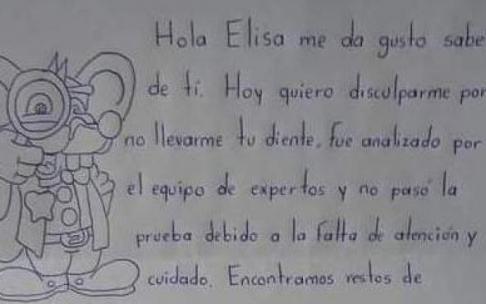 Hola Elisa me da gusto sabe
de ti. Hoy quiero disculparme por
no llevarme tu diente, fue analizado por
el equipo de expertos y no pasó la
prueba debido a la falta de atención y
cuidado. Encontramos restos de